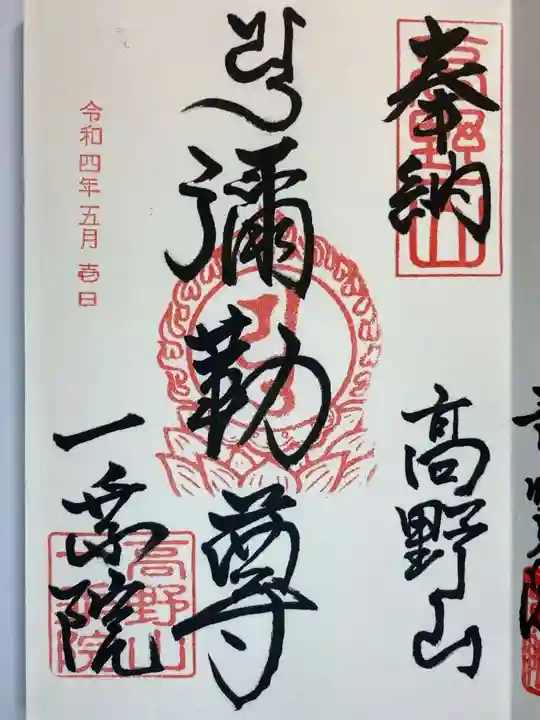 奉納
高野山
高野山
彌勒尊
令和四年五月壱日
一乗院
高野山一乗院